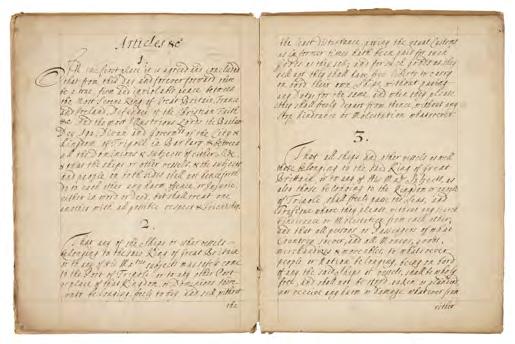 Articles &c
1
In the first place it is agreed and concluded
that from this day and forever forward there
be a true, firm and inviolable peace between
the Most Serene King of Great Britain, France
and Ireland, Defender of the Christian Faith
&c And the most Illustrious Lords the Bashaw
Dey Aga, Divan and Governors of the City &
Kingdom of Tripoli in Barbary & between
all the Dominions & Subjects of either Side
& that the Ships or other vessels & the subjects
and people on both sides shall not henceforth
do to each other any harm offence or Injurie,
either in word or deed, but shall treat one
another with all possible respect & friendship.
2
That any of the Ships or other vessels
belonging to the said King of Great Britain
or to any of his Ma subjects may safely come
to the Port of Tripoli or to any other Port
or place of that Kingdom or Dominions there
unto belonging, freely to buy and sell without
the
the least disturbance, paying the usual Customs
as in former times hath been paid for such
Goods as they sell; and for such goods as they
sell not they shall have free liberty to carry
on board their own Ships without paying
any Duty for the same, and when they please,
they shall freely depart from thence, without any
stop hindrance or Molestation whatsoever.
3.
That all Ships and other vessels as well
those belonging to the said King of Great
Brittain, or to any of his Ma Subjects, as
also those belonging to the Kingdom or people
of Tripoli, shall freely pass the Seas, and
Traffique where they please, without any search
hinderance or Molestation from each other;
and that all persons or Passengers of what
Country soever, and all Moneys, goods,
merchandizes & moveables, to whatsoever
people or Nation belonging, being on bord
of any the said ships or vessels, shall be wholly
free, and shall not be stopt taken or plundred
nor receive any harm or damage whatsoever from
either